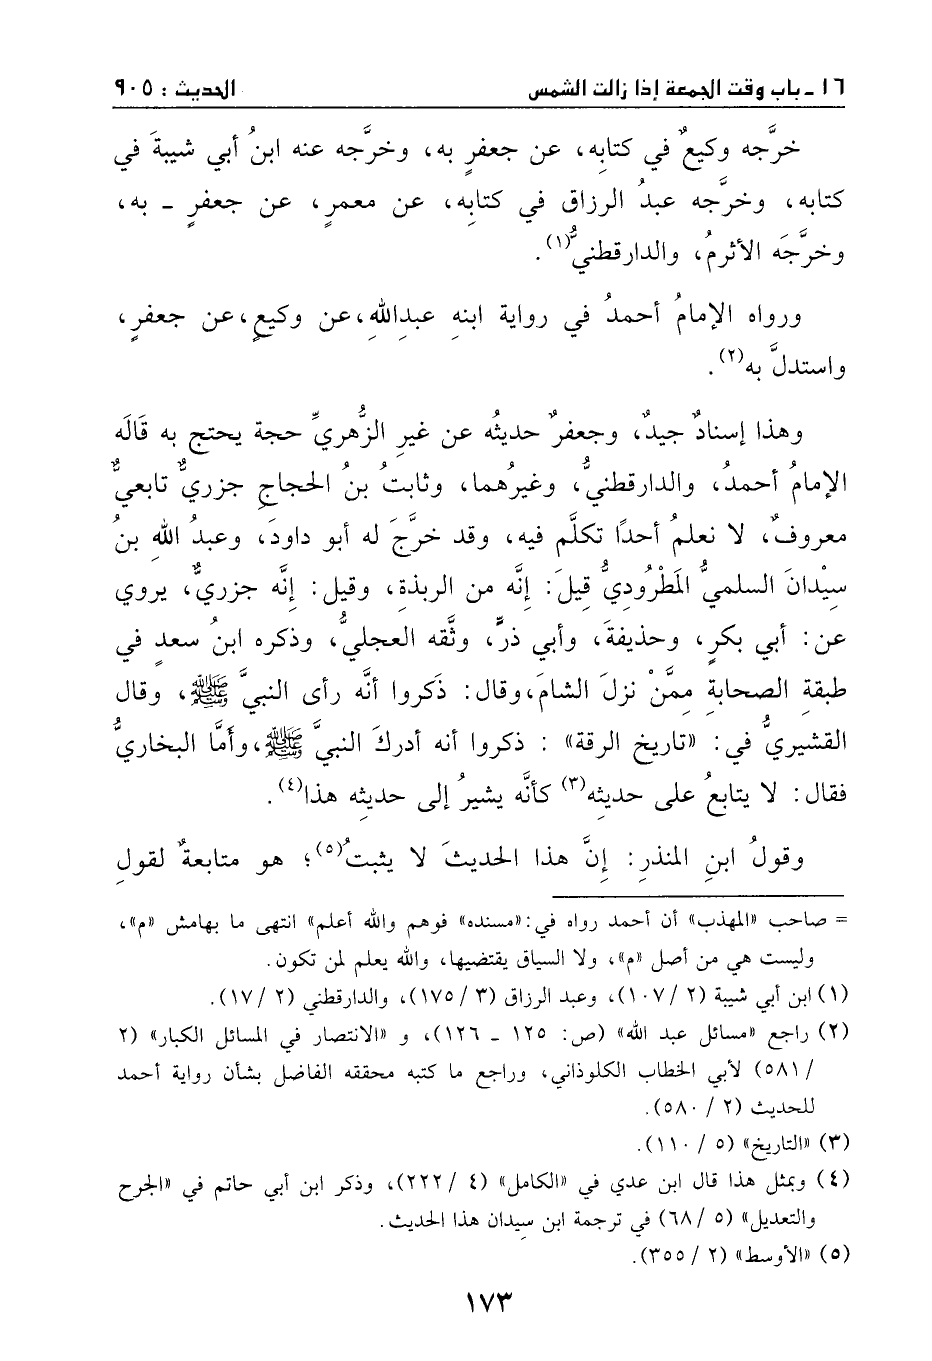 ١٦ - باب وقت الجمعة إذا زالت الشمس الحديث : ٩٠٥
خرَّجه وكيعٌ في كتابِه، عن جعفرٍ به، وخرَّجه عنه ابنُ أبي شيبةَ في
كتابه، وخرَّجه عبدُ الرزاق في كتابِه، عن معمرٍ، عن جعفرٍ - به،
وخرَّجَه الأثرمُ، والدارقطنيُّ(١).
ورواه الإمامُ أحمدُ في رواية ابنهِ عبدِاللهِ،عن وكيعٍ،عن جعفرٍ،
واستدلَّ به(٢).
وهذا إسنادٌ جيدٌ، وجعفرٌ حديثُه عن غيرِ الزُّهريِّ حجة يحتج به قَالَه
الإمامُ أحمدُ، والدارقطنيُّ، وغيرُهما، وثابتُ بنُ الحجاجِ جزريٌّ تابعيٌّ
معروفٌ، لا نعلمُ أحدًا تكلَّم فيه، وقد خرَّجَ له أبو داودَ، وعبدُ اللهِ بنُ
سِيْدانَ السلميُّ المَطْرُوديُّ قِيلَ: إنَّه من الربذةِ، وقيل: إنَّه جزريٌّ، يروي
عن: أبي بكرٍ، وحذيفةَ، وأبي ذرٍّ، وثَّقه العجليُّ، وذكره ابنُ سعدٍ في
طبقةِ الصحابةِ ممَّنْ نزلَ الشامَ،وقال: ذَكروا أنَّه رأى النبيَّ ﷺ، وقال
القشيريُّ في: «تاريخ الرقة» : ذكروا أنه أدركَ النبيَّ ﷺ،وأَمَّا البخاريُّ
فقال: لا يتابعُ على حديثِه(٣) كأنَّه يشيرُ إلى حديثِه هذا(٤).
وقولُ ابنِ المنذرِ: إنَّ هذا الحديثَ لا يثبتُ(٥)؛ هو متابعةٌ لقولِ
= صاحب «المهذب» أن أحمد رواه في:«مسنده» فوهم والله أعلم» انتهى ما بهامش «م»،
وليست هي من أصل «م»، ولا السياق يقتضيها، والله يعلم لمن تكون.
(١) ابن أبي شيبة (٢ / ١٠٧)، وعبد الرزاق (٣ / ١٧٥)، والدارقطني (٢ / ١٧).
(٢) راجع «مسائل عبد الله» (ص: ١٢٥ - ١٢٦)، و «الانتصار في المسائل الكبار» (٢
/ ٥٨١) لأبي الخطاب الكلوذاني، وراجع ما كتبه محققه الفاضل بشأن رواية أحمد
للحديث (٢ / ٥٨٠).
(٣) «التاريخ» (٥ / ١١٠).
(٤) وبمثل هذا قال ابن عدي في «الكامل» (٤ / ٢٢٢)، وذكر ابن أبي حاتم في «الجرح
والتعديل» (٥ / ٦٨) في ترجمة ابن سيدان هذا الحديث.
(٥) «الأوسط» (٢ / ٣٥٥).
١٧٣